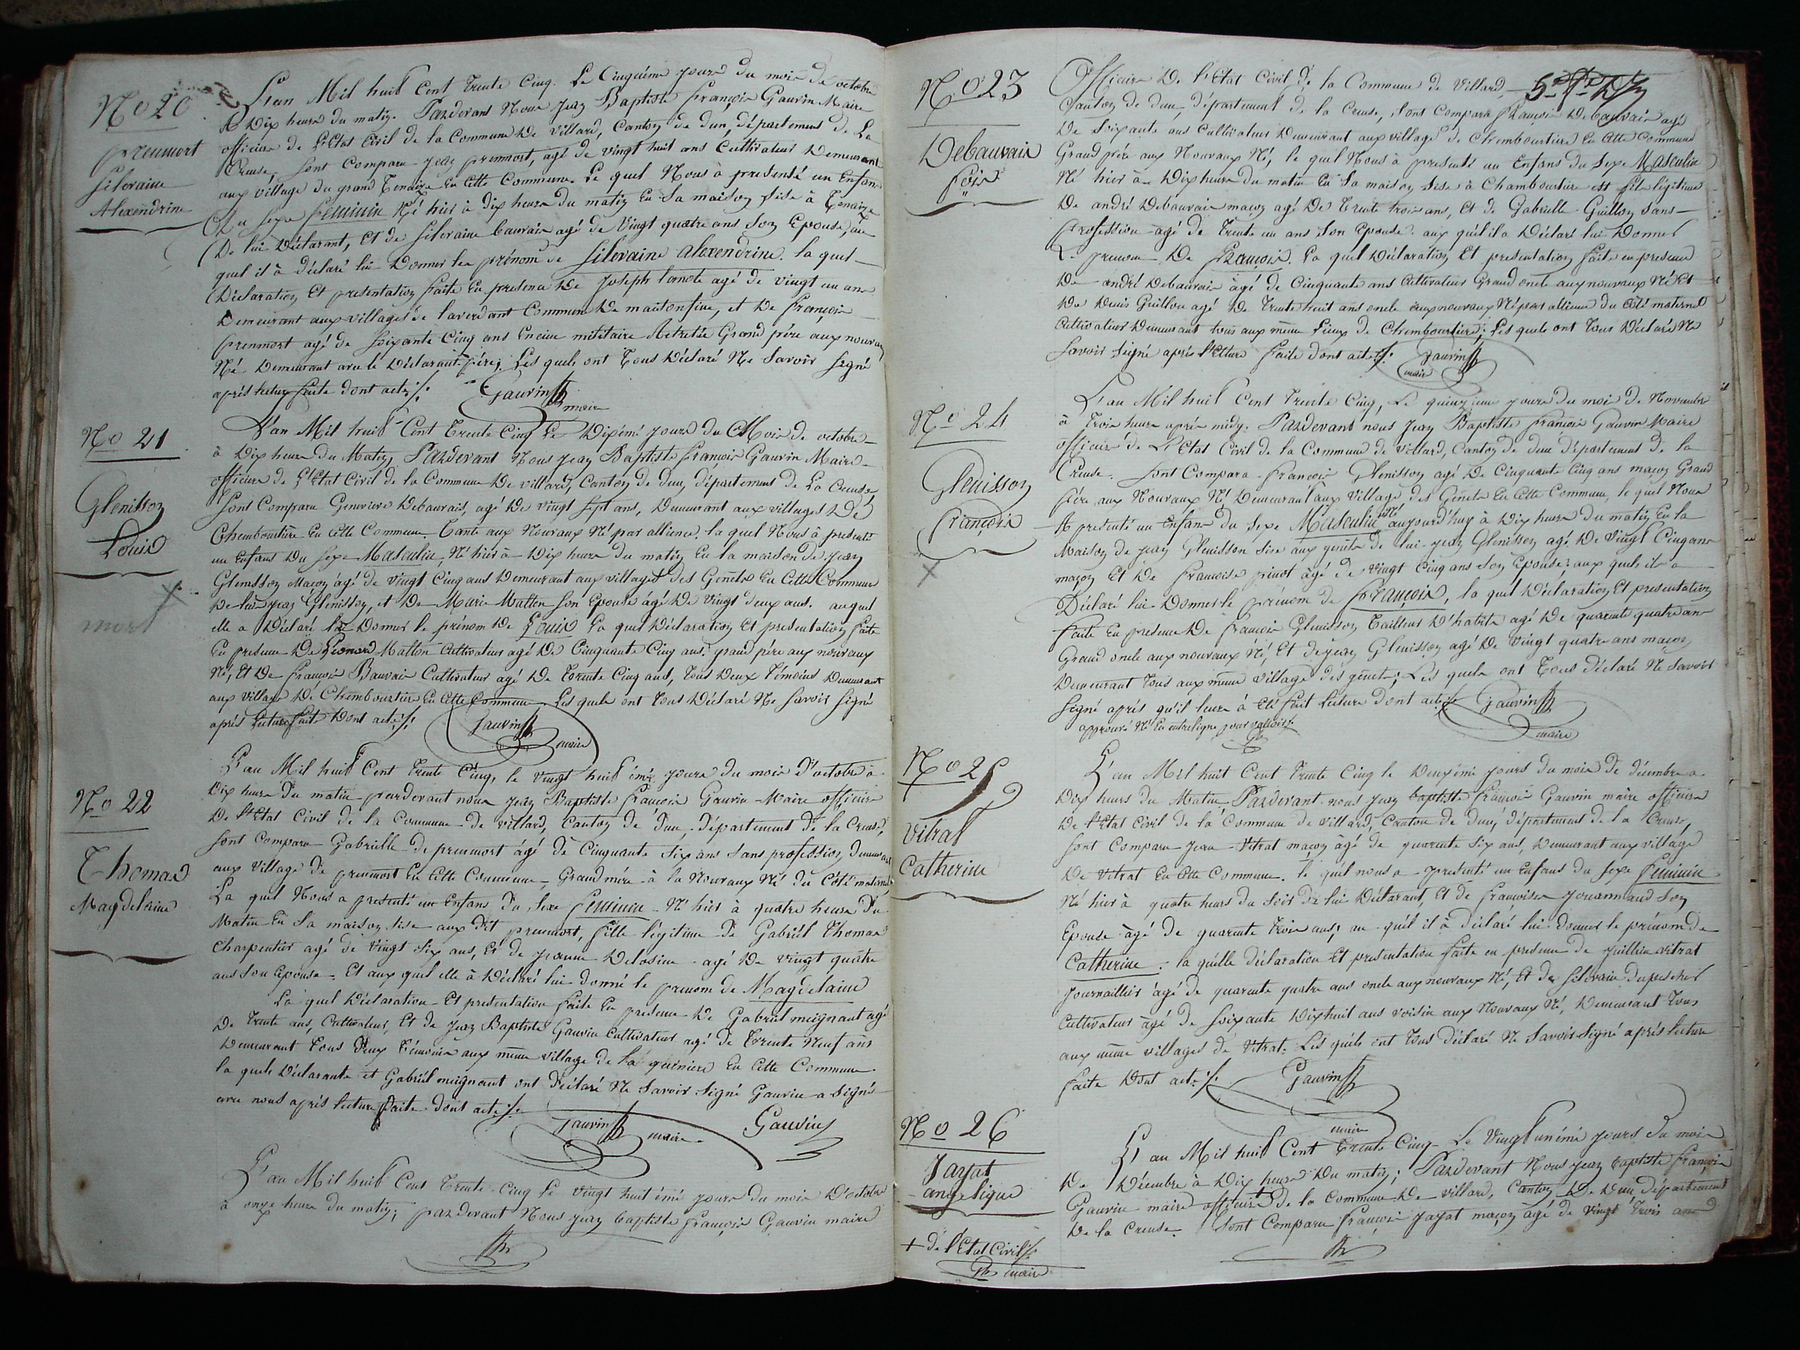 No 20
premmort
Silveraine
Alexendrine
L'an Mil huit Cent Trente Cinq. Le Cinquième jours du mois de octobre
à Dix heure du matin. Pardevant Nous Jean Baptiste françois Gauvin Maire
officier de l'Etat Civil de la Commune De Villard, Canton de dun, département de La
Creuse, sont Comparu Jean premmort, agé de vingt huit ans Cultivateur Demeurant
aux village du grand Tenaize En Cette Commune Le quel Nous à presenté un Enfans
Du sexe féminin Né hier à dix heure du matin En Sa maison sise à Tenaize
De lui Déclarant, Et de Silveraine bauvais agé de Vingt quatre ans Son Epouse, au
quel il à déclaré lui Donner les prénom de Silveraine Alexendrine. la quel
Déclaration Et presentation faite En presence De Joseph agé de vingt un ans
Demeurant aux villages de Laverdant Commune De maisonfeine, et De françois
premmort agé de Soixante Cinq ans Encien militaire Retretée Grand père aux nouveau
Né Demeurant avec le Déclarant père; Les quels ont Tous Déclaré Ne Savoir Signé
après lecture faite dont acte ./.
Gauvin
maire
No 21
Glenisson
Louis
mort
L'an Mil huit Cent Trente Cinq Le Dixième Jours du Mois de octobre
à Dix heure du Matin, Pardevant Nous Jean Baptiste francois Gauvin Maire
officier de l'Etat Civil de la Commune De villard, Canton de dun, département de La Creuse
Sont Comparu Geneviève Debauvais, agé de Vingt Sept ans, Demeurant aux villages De
Chemboursière En cette Commune Tante aux Nouveaux Né par alliance. la quel Nous à presenté
un Enfans Du Sexe Masculin, Né hier à Dix heure du matin En la maison de Jean
Glenisson Maçon agé de Vingt Cinq ans Demeurant aux villages des Genêts En Cette Commune
De lui Jean Glénisson, et De Marie Matton Son Epouse agé De Vingt deux ans. auquel
elle a Déclaré lui Donner le prénom de Louis La quel Déclaration Et presentation faite
En presence De Léonard Matton Cultivateur agé De Cinquante Cinq ans, grand père aux nouveaux
Né, Et De François Bauvais Cultivateur agé De Trente Cinq ans, Tous Deux Témoins Demeurant
aux village De Chemboursière En Cette Commune Les quels ont Tous Déclaré Ne Savoir Signé
après lecture fait Dont acte ./.
Gauvin
maire
No 22
Thomas
Magdelaine
L'an Mil huit Cent Trente Cinq, le Vingt huit ème Jours du mois d'octobre à
Dix heure Du matin pardevant nous Jean Baptiste francois Gauvin Maire officier
De l'Etat Civil de la Commune de Villard, Canton de dun, département de la Creuse,
Sont Comparu Gabrielle de premmort agé de Cinquante Six ans Sans profession, Demeurant
aux Village De premmort En Cette Commune, Grand mère à la Nouveaux Né du Coté maternel
La quel Nous a presenté un Enfans Du Sexe féminin Né hier à quatre heure Du
Matin En Sa maison sise aux Dit premmort, fille légitime De Gabriel Thomas
Charpentier agé de Vingt Six ans, Et de Jeanne agé De vingt quatre
ans Son Epouse. Et aux quel elle à Déclaré lui donné le prenom de Magdelaine
La quel Déclaration Et presentation faite En présence De Gabriel meignant agé
De Trente ans, Cultivateur, Et de Jean Baptiste Gauvin Cultivateur agé de Trente Neuf ans
Demeurant Tous Deux Témoins aux même village de la En Cette Commune.
la quele Déclarante et Gabriel meignant ont Déclaré Ne Savoir Signé Gauvin a Signé
avec nous après lecture faite dont acte ./.
Gauvin maire Gauvin
L'an Mil huit Cent Trente Cinq Le Vingt huit ème jours du mois D'octobre
à onze heure du matin; pardevant Nous Jean baptiste françois Gauvin maire
No 23
Debauvais
fois
Officier De l'Etat Civil de la Commune de Villard
Canton de dun, département de la Creuse, Sont Comparu françois Debauvais agé
De Soixante ans Cultivateur Demeurant aux village de Chemboursière En Cette Commune
Grand père aux Nouveaux Né, le quel Nous à presenté un Enfans du Sexe Masculin
Né hier à Dix heure du matin En Sa maison Sise à Chamboursière Et fils légitime
De andré Debauvais maçon agé De Trente Trois ans, Et de Gabrielle Guillon Sans
Profession agé de Trente un ans Son Epouse. aux quel il a Déclaré lui Donner
Le prenom De François. La quel Déclaration Et presentation faite en presence
De andré Debauvais agé de Cinquante ans Cultivateur Grand oncle aux nouveaux Né Et
De Denis Guillon agé De Trente huit ans oncle aux nouveaux Né par alliance du Coté maternel
Cultivateur Demeurant tous aux meme Lieux de Chemboursière; Les quels ont Tous Déclaré Ne
Savoir Signé après lecture faite dont acte ./.
Gauvin
maire
No 24
Glenisson
françois
L'an Mil huit Cent Trente Cinq, Le quinzième jours du moi de Novembre
à Trois heure après midy. Pardevant nous Jean Baptiste francois Gauvin Maire
officier de L'Etat Civil de la Commune de Villard, Canton de dun département de la
Creuse. Sont Comparu François Glenisson agé De Cinquante Cinq ans maçon Grand
père aux Nouveaux Né Demeurant aux Village des Genêts En Cette Commune, le quel Nous
A presenté un Enfans du Sexe Masculin Né aujourd'huy à Dix heure du matin En la
Maison de Jean Glenisson Sise aux genêts de lui Jean Glenisson agé De Vingt Cinq ans
maçon Et De francoise pinot agé de Vingt Cinq ans Son Epouse: aux quels il a
Déclaré lui Donner le prénom de François, la quel Déclaration Et presentation
faite En presence De francois Glenisson Tailleur D'habits agé de quarente quatre ans
Grand oncle aux nouveaux Né, Et de Jean Glenisson agé De Vingt quatre ans maçon
Demeurant Tous aux même village des genêts; Les quels ont Tous déclaré Ne Savoir
Signé après qu'il leur à Eté fait Lecture dont acte ./.
Gauvin
approuvé Né En interligne pour valloir ./.
maire
No 25
Vitrat
Catherine
L'an Mil huit Cent Trente Cinq le Deuxième jours du mois De décembre à
Dix heurs du Matin Pardevant nous Jean baptiste françois Gauvin maire officier
De l'Etat Civil de la Commune de Villard, Canton de dun, département de la Creuse,
Sont Comparu Jean Vitrat maçon agé de quarente Six ans, Demeurant aux village
De Vitrat En Cette Commune. le quel nous a presenté un Enfans du Sexe feminin
Né hier à quatre heurs du Soir De lui Déclarant, Et de françoise Jouannaud Son
Epouse agé de quarente Trois ans, au quel il à déclaré lui donner le prénom de
Catherine, la quelle déclaration Et presentation faite en presence de Guillien Vitrat
Journaillier agé de quarente quatre ans oncle aux nouveaux Né, Et de Silverain
Cultivateur agé de Soixante Dixhuit ans voisin aux Nouveaux Né, Demeurant Tous
aux même villages de Vitrat. Les quels ont Tous déclaré Ne Savoir Signé après lecture
faite Dont acte ./.
Gauvin
maire
No 26
Jayat
angelique
L'an Mil huit Cent Trente Cinq Le Vingt unième jours Du mois
De Décembre à Dix heure Du matin; Pardevant Nous Jean baptiste françois
Gauvin maire officier + de la Commune De villard, Canton De Dun département
De la Creuse. Sont Comparu françois Jayat maçon agé de Vingt Trois ans
+ de l'Etat Civil ./.
maire